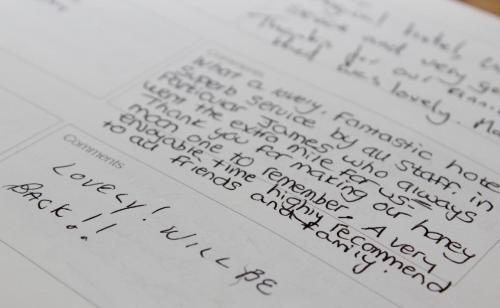 hotel,
and very
Thanks for our
food was lovely.
Comments
What a lovely. Fantastic hotel
Superb service by all staff. in
Particular James who always
went the extra mile for us.
Thank you for making our honey
moon one to remember. A very
enjoyable time highly recommend
to all friends and family.
Comments
LOVELY! WILL BE
BACK!!